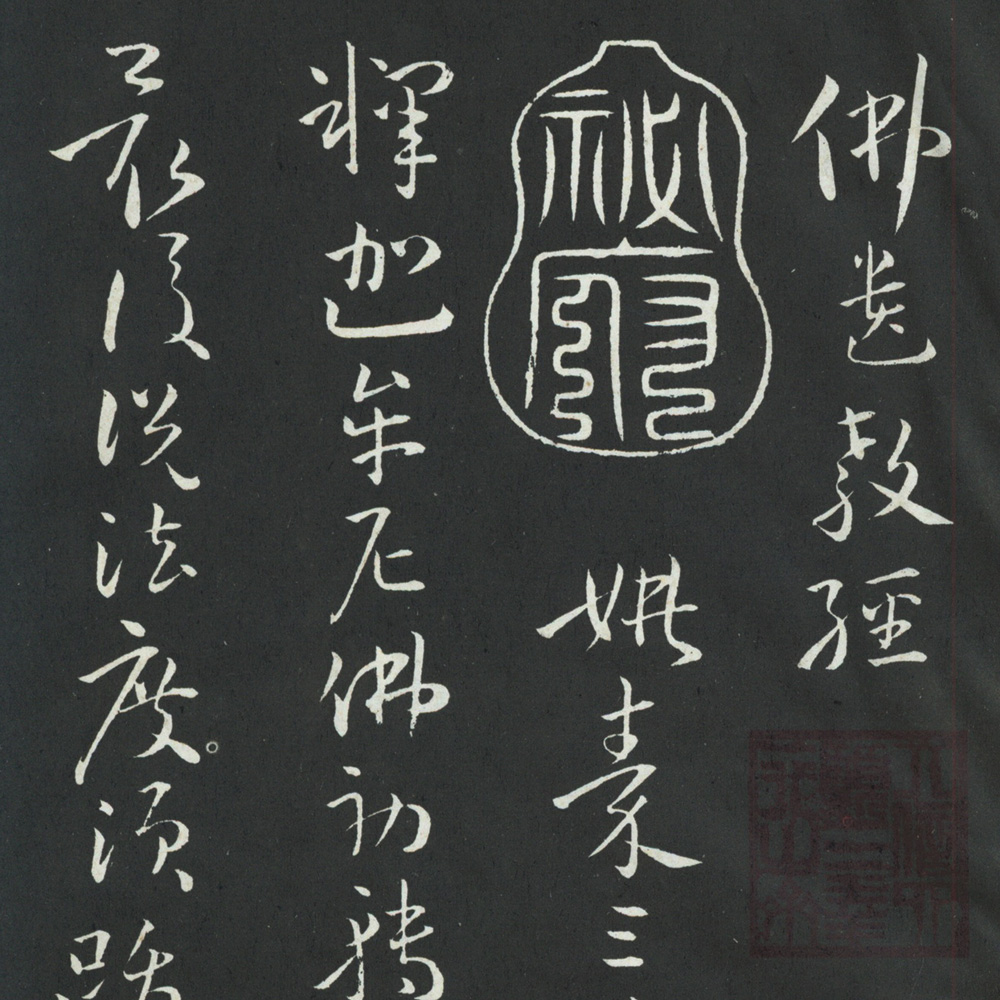 佛遺教經
姚秦三
釋迦牟尼佛初轉
最後說法度須跋